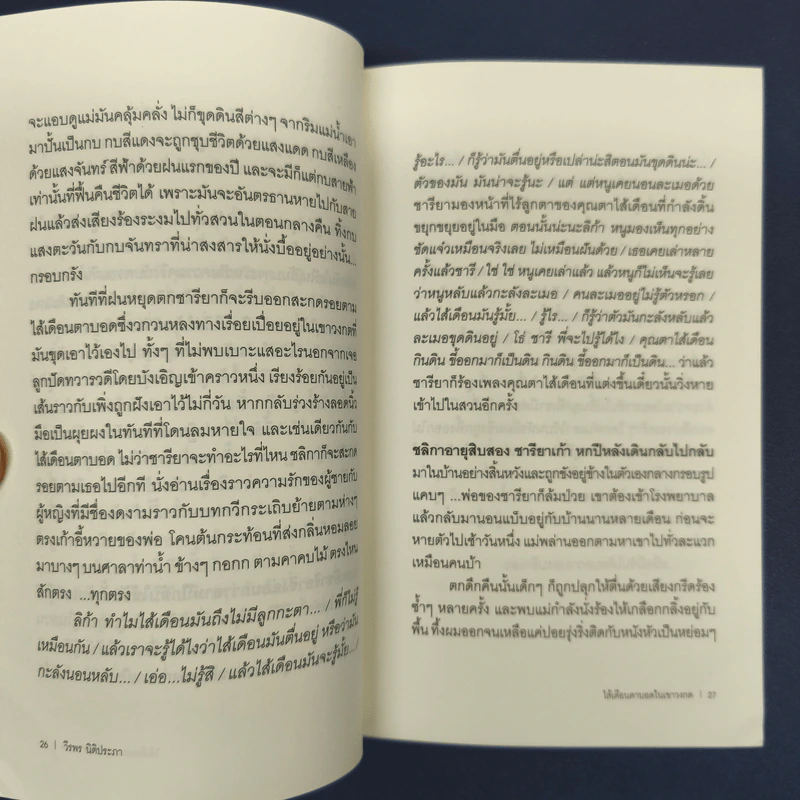 จะแอบดูแม่มันคลุ้มคลั่ง ไม่ก็ขุดดินสีต่างๆ จากริมแม่น้ำเอา
มาปั้นเป็นกบ กบสีแดงจะถูกชุบชีวิตด้วยแสงแดด กบสีเหลือง
ด้วยแสงจันทร์ สีฟ้าด้วยฝนแรกของปี และจะมีก็แต่กบสายฟ้า
เท่านั้นที่ฟื้นคืนชีวิตได้ เพราะมันจะอันตรธานหายไปกับสาย
ฝนแล้วส่งเสียงร้องระงมไปทั่วสวนในตอนกลางคืน ทิ้งกบ
แสงตะวันกับกบจันทราที่น่าสงสารให้นั่งบื้ออยู่อย่างนั้น...
กรอบกรัง
ทันทีที่ฝนหยุดตกชารียาก็จะรีบออกสะกดรอยตาม
ไส้เดือนตาบอดซึ่งวกวนหลงทางเรื่อยเปื่อยอยู่ในเขาวงกตที่
มันขุดเอาไว้เองไป ทั้งๆ ที่ไม่พบเบาะแสอะไรนอกจากเจอ
ลูกปัดทวารวดีโดยบังเอิญเข้าคราวหนึ่ง เรียงร้อยกันอยู่เป็น
เส้นราวกับเพิ่งถูกฝังเอาไว้ไม่กี่วัน หากกลับร่วงร้างลอดนิ้ว
มือเป็นผุยผงในทันทีที่โดนลมหายใจ และเช่นเดียวกันกับ
ไส้เดือนตาบอด ไม่ว่าชารียาจะทำอะไรที่ไหน ชลิกาก็จะสะกด
รอยตามเธอไปอีกที นั่งอ่านเรื่องราวความรักของผู้ชายกับ
ผู้หญิงที่มีชื่องดงามราวกับบทกวีกระเถิบย้ายตามห่างๆ
ตรงเก้าอี้หวายของพ่อ โคนต้นกระท้อนที่ส่งกลิ่นหอมลอย
มาบางๆ บนศาลาท่าน้ำ ข้างๆ กอกก ตามคาคบไม้ ตรงไหน
สักตรง ...ทุกตรง
ลิก้า ทำไมไส้เดือนมันถึงไม่มีลูกกะตา... / พี่ก็ไม่รู้
เหมือนกัน / แล้วเราจะรู้ได้ไงว่าไส้เดือนมันตื่นอยู่ หรือว่ามัน
กะลังนอนหลับ... / เอ่อ...ไม่รู้สิ / แล้วไส้เดือนมันจะรู้มั้ย... /
26 | วีรพร นิติประภา
รู้อะไร... / ก็รู้ว่ามันตื่นอยู่หรือเปล่าน่ะสิตอนมันขุดดินน่ะ... /
ตัวของมัน มันน่าจะรู้นะ / แต่ แต่หนูเคยนอนละเมอด้วย
ชารียามองหน้าที่ไร้ลูกตาของคุณตาไส้เดือนที่กำลังดิ้น
ขยุกขยุยอยู่ในมือ ตอนนั้นน่ะนะลิก้า หนูมองเห็นทุกอย่าง
ชัดแจ๋วเหมือนจริงเลย ไม่เหมือนฝันด้วย / เธอเคยเล่าหลาย
ครั้งแล้วชารี / ใช่ ใช่ หนูเคยเล่าแล้ว แล้วหนูก็ไม่เห็นจะรู้เลย
ว่าหนูหลับแล้วกะลังละเมอ / คนละเมออยู่ไม่รู้ตัวหรอก /
แล้วไส้เดือนมันรู้มั้ย... / รู้ไร... / ก็รู้ว่าตัวมันกะลังหลับแล้ว
ละเมอขุดดินอยู่ / โธ่ ชารี พี่จะไปรู้ได้ไง / คุณตาไส้เดือน
กินดิน ขี้ออกมาก็เป็นดิน กินดิน ขี้ออกมาก็เป็นดิน... ว่าแล้ว
ชารียาก็ร้องเพลงคุณตาไส้เดือนที่แต่งขึ้นเดี๋ยวนั้นวิ่งหาย
เข้าไปในสวนอีกครั้ง
ชลิกาอายุสิบสอง ชารียาเก้า หกปีหลังเดินกลับไปกลับ
มาในบ้านอย่างสิ้นหวังและถูกขังอยู่ข้างในตัวเองกลางกรอบรูป
แคบๆ ...พ่อของชารียาก็ล้มป่วย เขาต้องเข้าโรงพยาบาล
แล้วกลับมานอนแบ็บอยู่กับบ้านนานหลายเดือน ก่อนจะ
หายตัวไปเช้าวันหนึ่ง แม่พล่านออกตามหาเขาไปทั่วละแวก
เหมือนคนบ้า
ตกดึกคืนนั้นเด็กๆ ก็ถูกปลุกให้ตื่นด้วยเสียงกรีดร้อง
ซ้ำๆ หลายครั้ง และพบแม่กำลังนั่งร้องไห้เกลือกกลิ้งอยู่กับ
พื้น ทึ้งผมออกจนเหลือแค่ปอยรุ่งริ่งติดกับหนังหัวเป็นหย่อมๆ
ไส้เดือนตาบอดในเขาวงกต | 27